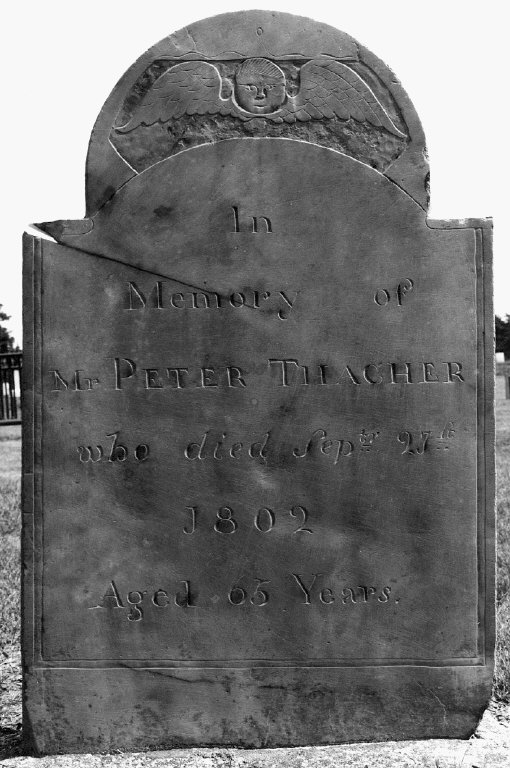 In
Memory of
Mr PETER THACHER
who died Septr 27th
1802
Aged 65 Years.